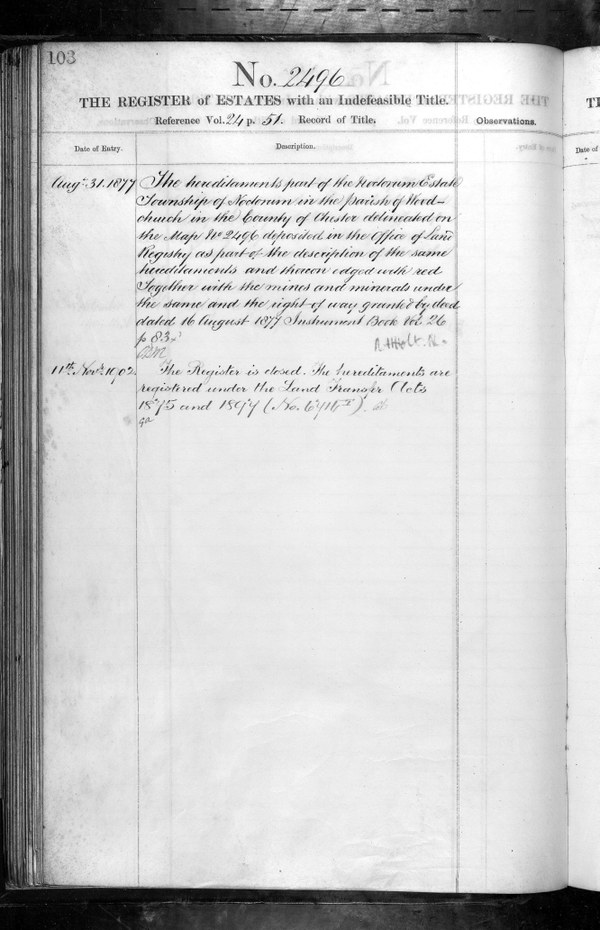 103
No. 2496
THE REGISTER of ESTATES with an Indefeasible Title.
Reference Vol. 24 p. 51. Record of Title.
Observations.
Date of Entry.
Description.
Augt 31. 1877
The hereditaments part of the Noctorum Estate
Township of Noctorum in the parish of Wood-
church in the County of Chester delineated on
the Map No 2496 deposited in the Office of Land
Registry as part of the description of the same
hereditaments and thereon edged with red
Together with the mines and minerals under
the same and the right of way granted by deed
dated 16 August 1877 Instrument Book Vol. 26
p 83
11th Novr 1902.
The Register is closed. The hereditaments are
registered under the Land Transfer Acts
1875 and 1897
Date of